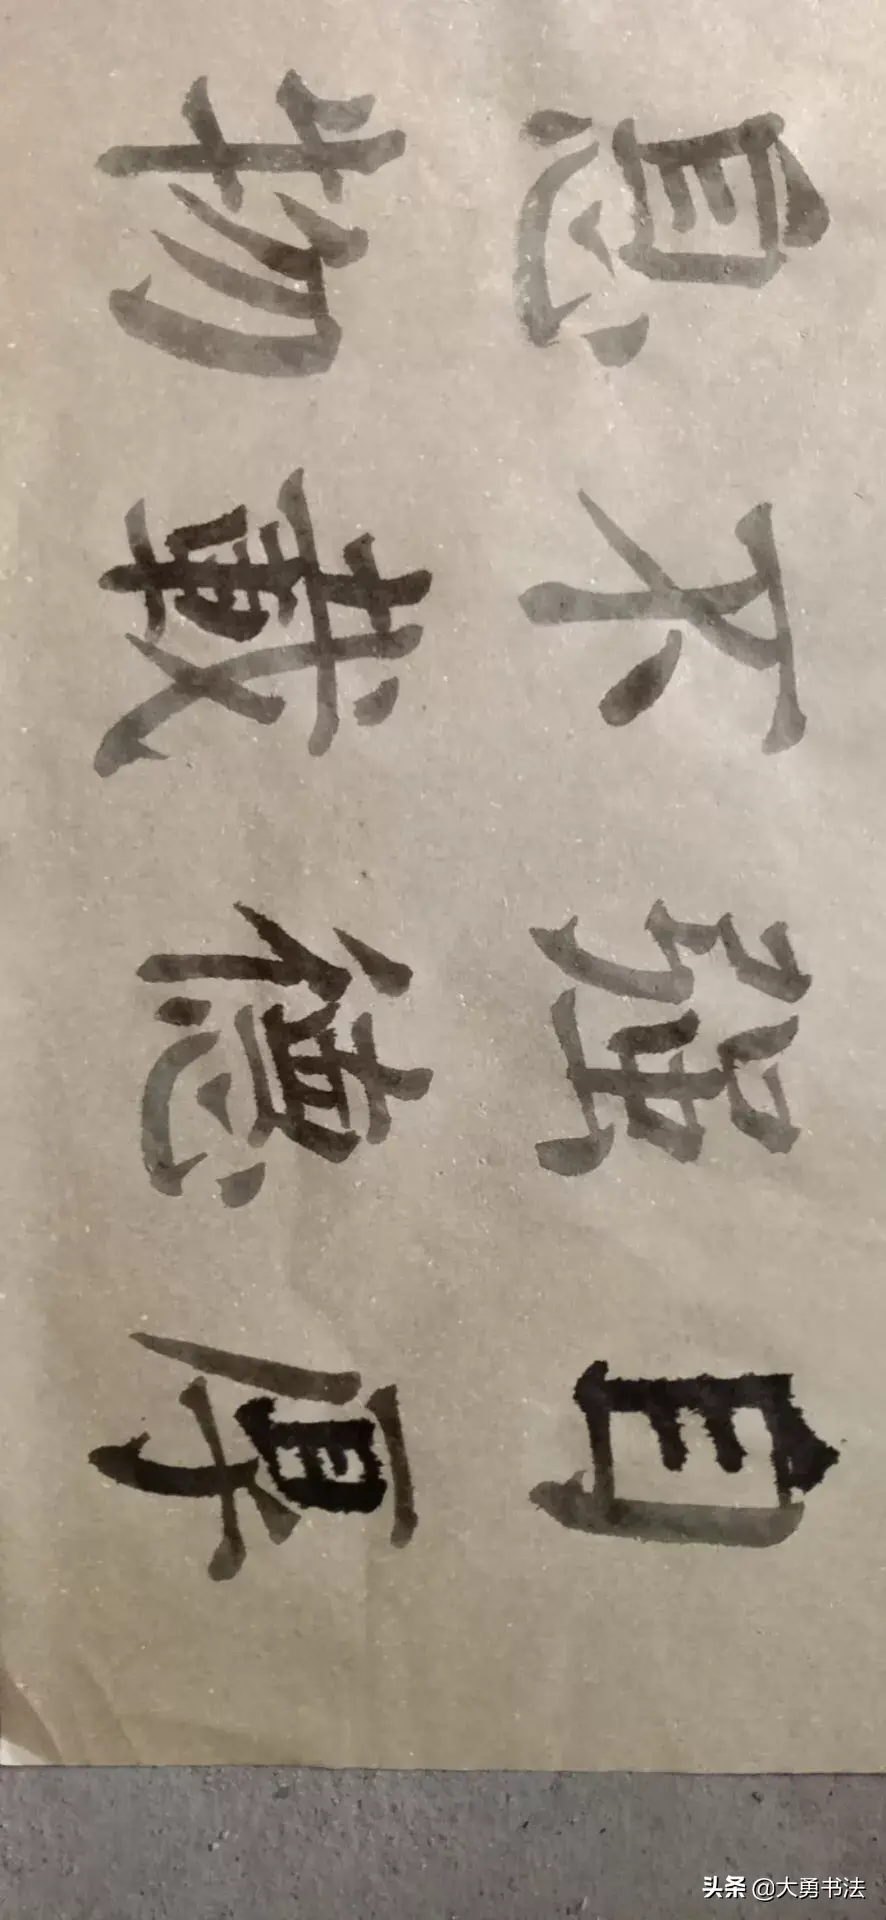 自强不息
厚德載物
头条 @大勇书法